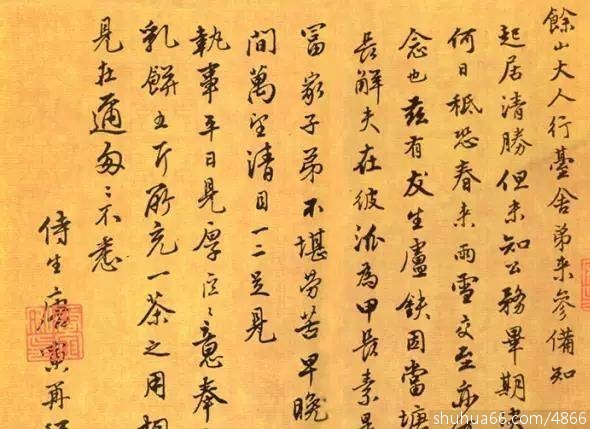 餘山大人行臺舍弟來參備知
起居清勝但未知公務畢期
何日秪恐春來雨雪交至亦
念也茲有友生盧鈇因當塘
長解夫在彼派為甲長素是
富家子弟不堪勞苦早晚
間萬望清目一二足見
執事平日見厚區〻意奉
乳餅五斤所充一茶之用相
見在邇匆〻不悉
侍生唐寅再
shuhua66.com/4866